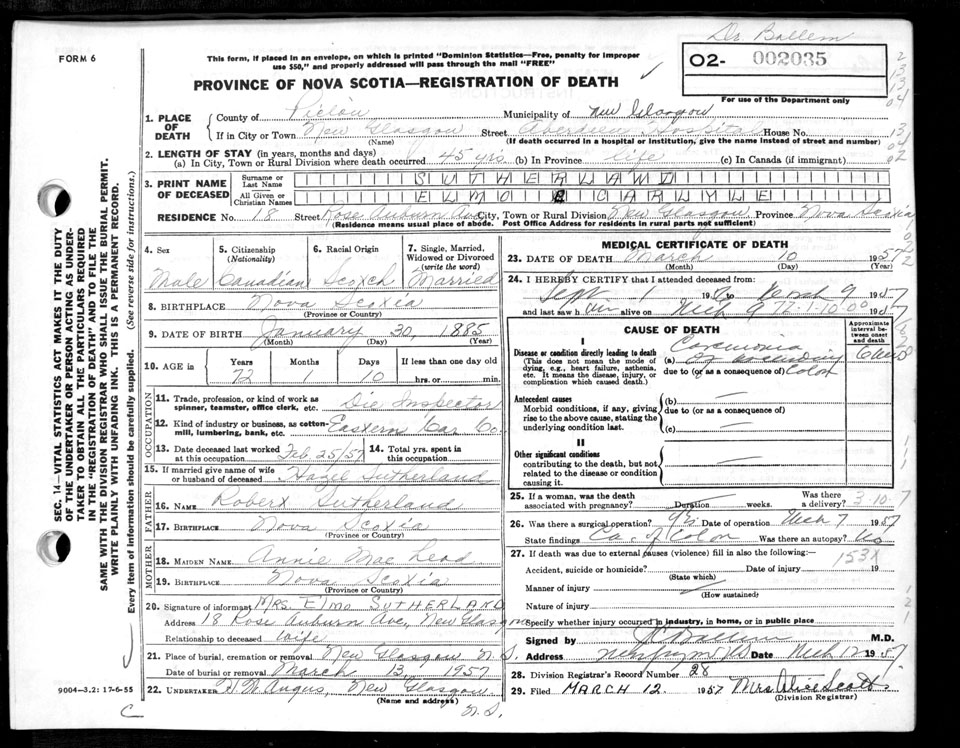 Dr. Ballem
FORM 6
This form, if placed in an envelope, on which is printed "Dominion Statistics—Free, penalty for improper
use $50," and properly addressed will pass through the mail "FREE"
O2- 002035
For use of the Department only
PROVINCE OF NOVA SCOTIA—REGISTRATION OF DEATH
1. PLACE OF DEATH
County of Pictou Municipality of New Glasgow
If in City or Town New Glasgow Street Aberdeen Hospital House No.
(Name) (If death occurred in a hospital or institution, give the name instead of street and number)
2. LENGTH OF STAY (in years, months and days)
(a) In City, Town or Rural Division where death occurred 45 yrs (b) In Province life (c) In Canada (if immigrant)
3. PRINT NAME OF DECEASED
Surname or Last Name SUTHERLAND
All Given or Christian Names ELMO CARLYLE
RESIDENCE No. 18 Street Rose Auburn Ave City, Town or Rural Division New Glasgow Province Nova Scotia
(Residence means usual place of abode. Post Office Address for residents in rural parts not sufficient)
4. Sex Male
5. Citizenship (Nationality) Canadian
6. Racial Origin Scotch
7. Single, Married, Widowed or Divorced (write the word) Married
8. BIRTHPLACE Nova Scotia
(Province or Country)
9. DATE OF BIRTH January 30, 1885
(Month) (Day) (Year)
10. AGE in Years 72 Months 1 Days 10 If less than one day old hrs. or min.
OCCUPATION
11. Trade, profession, or kind of work as spinner, teamster, office clerk, etc. Die Inspector
12. Kind of industry or business, as cotton-mill, lumbering, bank, etc. Eastern Car Co
13. Date deceased last worked at this occupation Feb 25/57
14. Total yrs. spent in this occupation
15. If married give name of wife or husband of deceased Hazel Sutherland
FATHER
16. NAME Robert Sutherland
17. BIRTHPLACE Nova Scotia
(Province or Country)
MOTHER
18. MAIDEN NAME Annie Mac Leod
19. BIRTHPLACE Nova Scotia
(Province or Country)
20. Signature of informant MRS. Elmo SUTHERLAND
Address 18 Rose Auburn Ave, New Glasgow
Relationship to deceased wife
21. Place of burial, cremation or removal New Glasgow N.S.
Date of burial or removal March 13, 1957
22. UNDERTAKER H W Angus, New Glasgow
(Name and address) N.S.
9004—3.2: 17-6-55
SEC. 14—VITAL STATISTICS ACT MAKES IT THE DUTY
OF THE UNDERTAKER OR PERSON ACTING AS UNDER-
TAKER TO OBTAIN ALL THE PARTICULARS REQUIRED
IN THE "REGISTRATION OF DEATH" AND TO FILE THE
SAME WITH THE DIVISION REGISTRAR WHO SHALL ISSUE THE BURIAL PERMIT.
WRITE PLAINLY WITH UNFADING INK. THIS IS A PERMANENT RECORD.
Every item of information should be carefully supplied. (See reverse side for instructions.)
MEDICAL CERTIFICATE OF DEATH
23. DATE OF DEATH March 10 1957
(Month) (Day) (Year)
24. I HEREBY CERTIFY that I attended deceased from:
Sept 1 19 to March 9 1957
and last saw h alive on Mch 9 1957
CAUSE OF DEATH
Approximate interval between onset and death
I
Disease or condition directly leading to death
(This does not mean the mode of dying, e.g., heart failure, asthenia, etc. It means the disease, injury, or complication which caused death.)
(a) Carcinoma of ascending Colon
due to (or as a consequence of)
Antecedent causes
Morbid conditions, if any, giving rise to the above cause, stating the underlying condition last.
(b) —
due to (or as a consequence of)
(c) —
II
Other significant conditions
contributing to the death, but not related to the disease or condition causing it.
25. If a woman, was the death associated with pregnancy? Duration weeks. Was there a delivery? 3-10-7
26. Was there a surgical operation? yes Date of operation Mch 7 1957
State findings Ca. of Colon Was there an autopsy? No
27. If death was due to external causes (violence) fill in also the following:—
153X
Accident, suicide or homicide? Date of injury 19
(State which)
Manner of injury
(How sustained)
Nature of injury
Specify whether injury occurred in industry, in home, or in public place
Signed by Ballem M.D.
Address Date Mch 12 1957
28. Division Registrar's Record Number 28
29. Filed MARCH 12. 1957 Mrs Alice Scott
(Division Registrar)